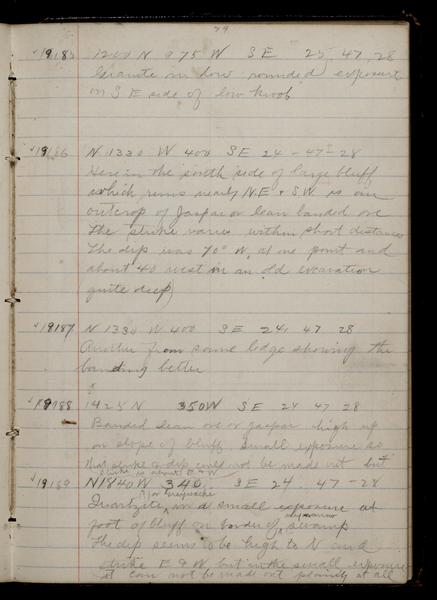 79
19185 1200 N 975 W SE 25, 47, 28
Granite in low rounded exposure
on S E side of low knob
19186 N 1330 W 400 SE 24 - 47 - 28
Here in the north side of large bluff
which runs nearly N.E & S.W. is an
outcrop of Jasper or lean banded ore
The strike varies within short distances
The dip was 70° W. at one point and
about 40 west in an old excavation
(quite deep)
19187 N 1330 W 400 SE 24, 47 28
Another from same ledge showing the
banding better
19188 1425 N 350W SE 24 47 28
Banded lean ore or jasper high up
on slope of bluff small exposure so
that strike & dip could not be made out but
strike is about E & W
19189 N1840W 340. SE 24. 47 - 28
Quartzite or greywacke in a small exposure at
foot of bluff on border of swamp
The dip seems to be high to N and
strike E & W but in the small exposure
it can not be made out plainly at all